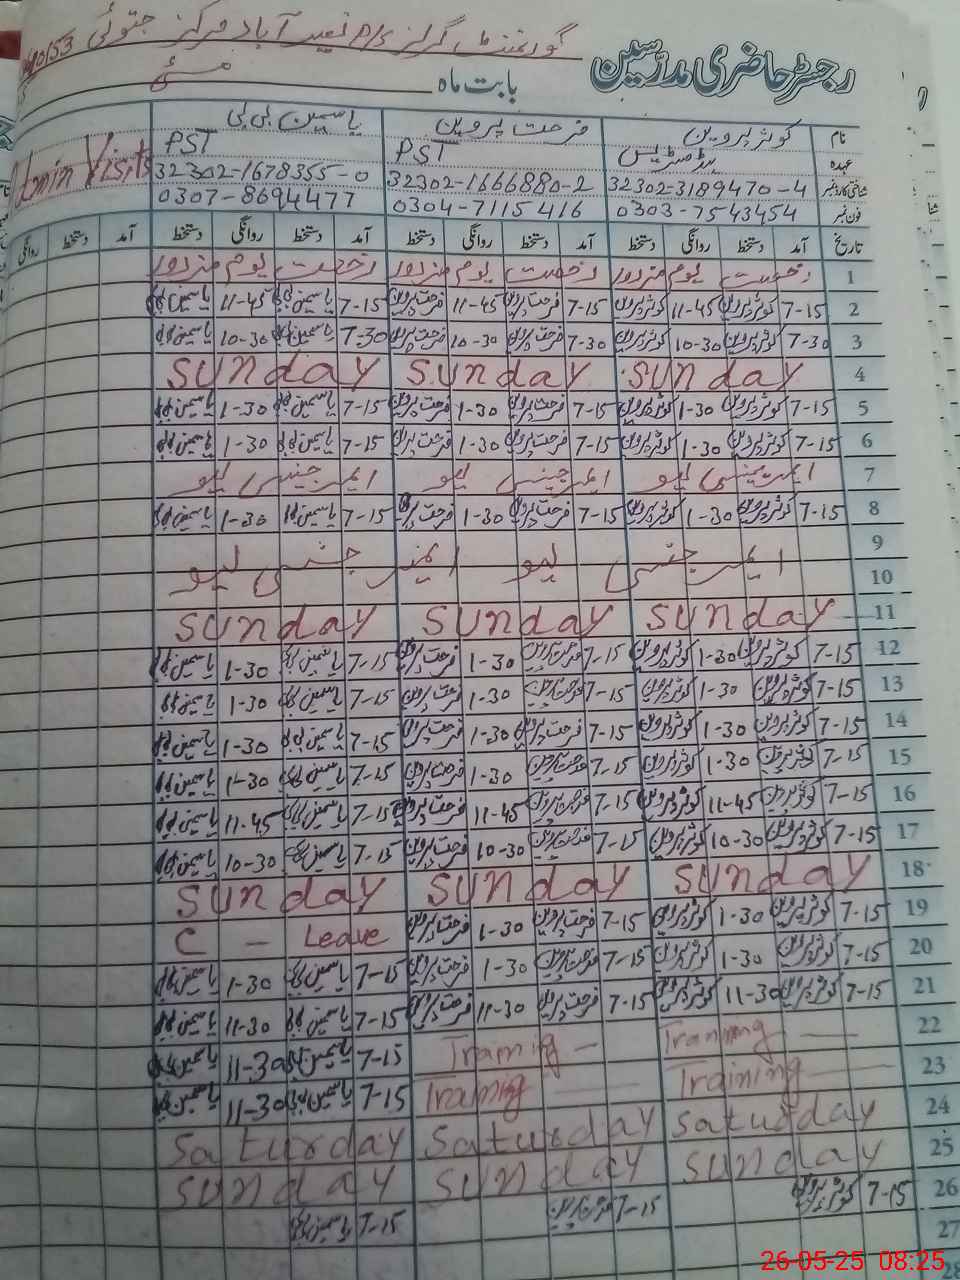 گورنمنٹ گرلز P/S نصیر آباد مرکز جتوئی
رجسٹر حاضری مدرسین
بابت ماہ مئی
نام کوثر پروین فرحت پروین یاسمین بی بی
عہدہ ہیڈ مسٹریس PST PST Admin Visits
شناختی کارڈ نمبر 32302-3189470-4 32302-1666880-2 32302-1678355-0
فون نمبر 0303-7543454 0304-7115416 0307-8694477
تاریخ آمد دستخط روانگی دستخط آمد دستخط روانگی دستخط آمد دستخط روانگی دستخط آمد دستخط روانگی
1 رخصت یوم مزدور رخصت یوم مزدور رخصت یوم مزدور
2 7-15 کوثر پروین 11-45 کوثر پروین 7-15 فرحت پروین 11-45 فرحت پروین 7-15 یاسمین بی بی 11-45 یاسمین بی بی
3 7-30 کوثر پروین 10-30 کوثر پروین 7-30 فرحت پروین 10-30 فرحت پروین 7-30 یاسمین بی بی 10-30 یاسمین بی بی
4 Sunday Sunday Sunday
5 7-15 کوثر پروین 1-30 کوثر پروین 7-15 فرحت پروین 1-30 فرحت پروین 7-15 یاسمین بی بی 1-30 یاسمین بی بی
6 7-15 کوثر پروین 1-30 کوثر پروین 7-15 فرحت پروین 1-30 فرحت پروین 7-15 یاسمین بی بی 1-30 یاسمین بی بی
7 ایمرجینسی لیو ایمرجینسی لیو ایمرجینسی لیو
8 7-15 کوثر پروین 1-30 کوثر پروین 7-15 فرحت پروین 1-30 فرحت پروین 7-15 یاسمین بی بی 1-30 یاسمین بی بی
9 ایمرجنسی لیو ایمرجنسی لیو
10
11 Sunday Sunday Sunday
12 7-15 کوثر پروین 1-30 کوثر پروین 7-15 فرحت پروین 1-30 فرحت پروین 7-15 یاسمین بی بی 1-30 یاسمین بی بی
13 7-15 کوثر پروین 1-30 کوثر پروین 7-15 فرحت پروین 1-30 فرحت پروین 7-15 یاسمین بی بی 1-30 یاسمین بی بی
14 7-15 کوثر پروین 1-30 کوثر پروین 7-15 فرحت پروین 1-30 فرحت پروین 7-15 یاسمین بی بی 1-30 یاسمین بی بی
15 7-15 کوثر پروین 1-30 کوثر پروین 7-15 فرحت پروین 1-30 فرحت پروین 7-15 یاسمین بی بی 1-30 یاسمین بی بی
16 7-15 کوثر پروین 11-45 کوثر پروین 7-15 فرحت پروین 11-45 فرحت پروین 7-15 یاسمین بی بی 11-45 یاسمین بی بی
17 7-15 کوثر پروین 10-30 کوثر پروین 7-15 فرحت پروین 10-30 فرحت پروین 7-15 یاسمین بی بی 10-30 یاسمین بی بی
18 Sunday Sunday Sunday
19 7-15 کوثر پروین 1-30 کوثر پروین 7-15 فرحت پروین 1-30 فرحت پروین C - Leave
20 7-15 کوثر پروین 1-30 کوثر پروین 7-15 فرحت پروین 1-30 فرحت پروین 7-15 یاسمین بی بی 1-30 یاسمین بی بی
21 7-15 کوثر پروین 11-30 کوثر پروین 7-15 فرحت پروین 11-30 فرحت پروین 7-15 یاسمین بی بی 11-30 یاسمین بی بی
22 Training — Training — 7-15 یاسمین بی بی 11-30 یاسمین بی بی
23 Training — Training — 7-15 یاسمین بی بی 11-30 یاسمین بی بی
24 Saturday Saturday Saturday
25 Sunday Sunday Sunday
26 7-15 کوثر پروین 7-15 فرحت پروین 7-15 یاسمین بی بی
27
28
26-05-25 08:25